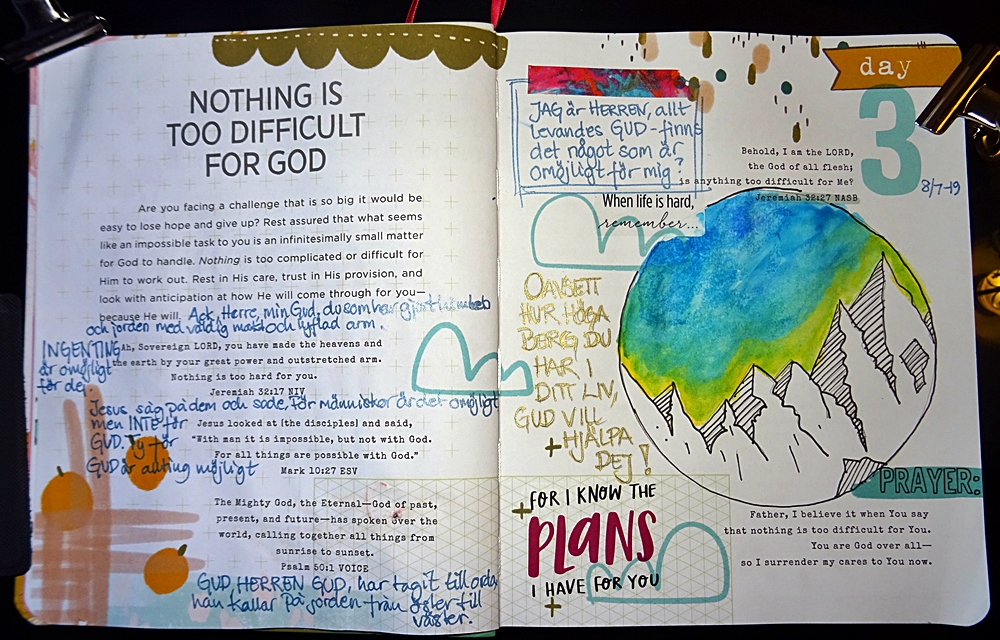 NOTHING IS
TOO DIFFICULT
FOR GOD
Are you facing a challenge that is so big it would be
easy to lose hope and give up? Rest assured that what seems
like an impossible task to you is an infinitesimally small matter
for God to handle. Nothing is too complicated or difficult for
Him to work out. Rest in His care, trust in His provision, and
look with anticipation at how He will come through for you—
because He will.
Ack, Herre, min Gud, du som har gjort himmeb
och jorden med väldig makt och lyftad arm.
INGENTING
är omöjligt
för dej.
Ah, Sovereign LORD, you have made the heavens and
the earth by your great power and outstretched arm.
Nothing is too hard for you.
Jeremiah 32:17 NIV
Jesus såg på dem och sade, För människor är det omöjligt
men INTE för
GUD. Ty för
GUD är allting möjligt
Jesus looked at [the disciples] and said,
"With man it is impossible, but not with God.
For all things are possible with God."
Mark 10:27 ESV
The Mighty God, the Eternal—God of past,
present, and future—has spoken over the
world, calling together all things from
sunrise to sunset.
Psalm 50:1 VOICE
GUD, HERREN GUD, har tagit till orda,
han kallar på jorden från öster till
väster.
day
3
8/7-19
JAG är HERREN, allt
levandes GUD - finns
det något som är
omöjligt för mig?
Behold, I am the LORD,
the God of all flesh;
is anything too difficult for Me?
Jeremiah 32:27 NASB
When life is hard,
remember...
OAVSETT
HUR HÖGA
BERG DU
HAR I
DITT LIV,
GUD VILL
HJÄLPA
DEJ!
FOR I KNOW THE
PLANS
I HAVE FOR YOU
PRAYER:
Father, I believe it when You say
that nothing is too difficult for You.
You are God over all—
so I surrender my cares to You now.